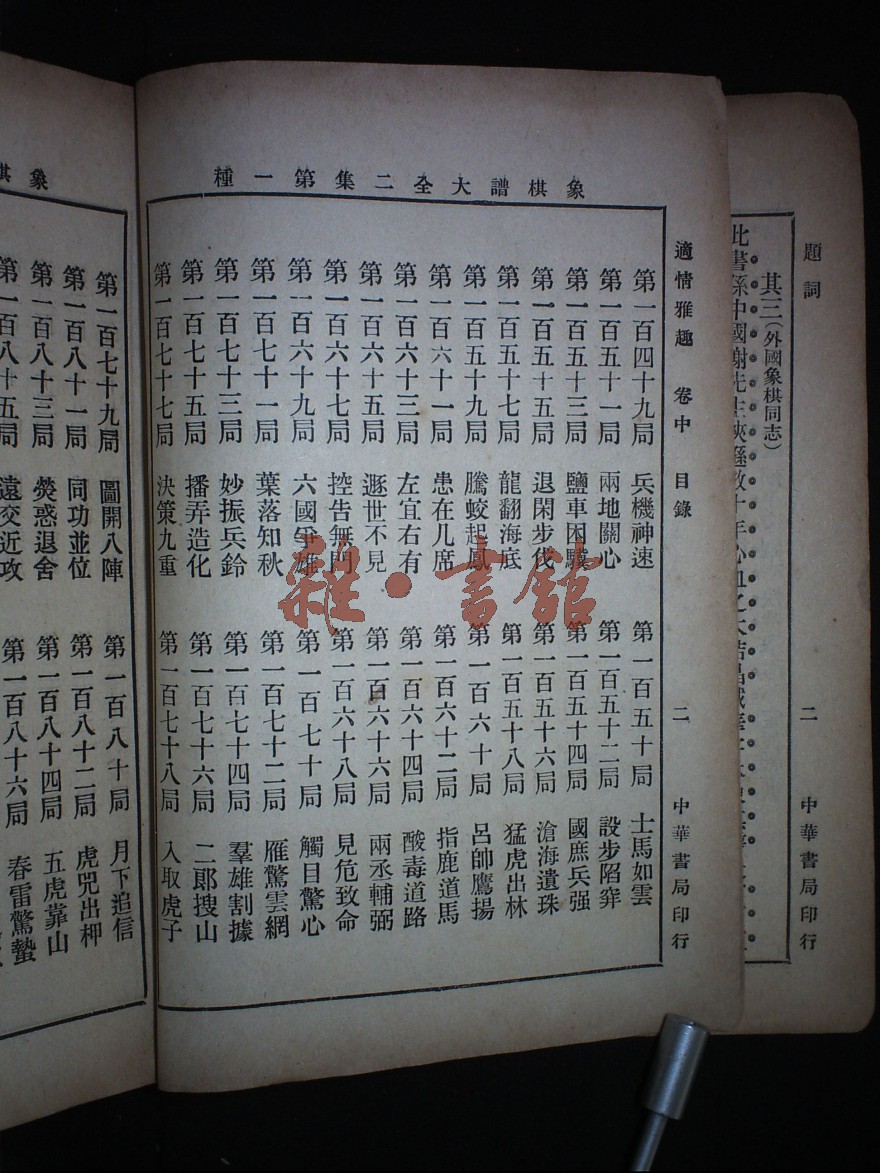 題詞 二 中華書局印行
其三(外國象棋同志)
此書係中國謝先生俠遜數十年心血之
象棋譜大全二集第一種
適情雅趣 卷中 目錄 二 中華書局印行
第一百四十九局 兵機神速 第一百五十局 士馬如雲
第一百五十一局 兩地關心 第一百五十二局 設步陷穽
第一百五十三局 鹽車困驥 第一百五十四局 國庶兵强
第一百五十五局 退閑步伐 第一百五十六局 滄海遺珠
第一百五十七局 龍翻海底 第一百五十八局 猛虎出林
第一百五十九局 騰蛟起鳳 第一百六十局 呂帥鷹揚
第一百六十一局 患在几席 第一百六十二局 指鹿道馬
第一百六十三局 左宜右有 第一百六十四局 酸毒道路
第一百六十五局 遯世不見 第一百六十六局 兩丞輔弼
第一百六十七局 控告無門 第一百六十八局 見危致命
第一百六十九局 六國爭雄 第一百七十局 觸目驚心
第一百七十一局 葉落知秋 第一百七十二局 雁驚雲網
第一百七十三局 妙振兵鈴 第一百七十四局 羣雄割據
第一百七十五局 播弄造化 第一百七十六局 二郞搜山
第一百七十七局 決策九重 第一百七十八局 入取虎子
象棋
第一百七十九局 圖開八陣 第一百八十局 月下追信
第一百八十一局 同功並位 第一百八十二局 虎兕出柙
第一百八十三局 熒惑退舍 第一百八十四局 五虎靠山
第一百八十五局 遠交近攻 第一百八十六局 春雷驚蟄
雜·書館